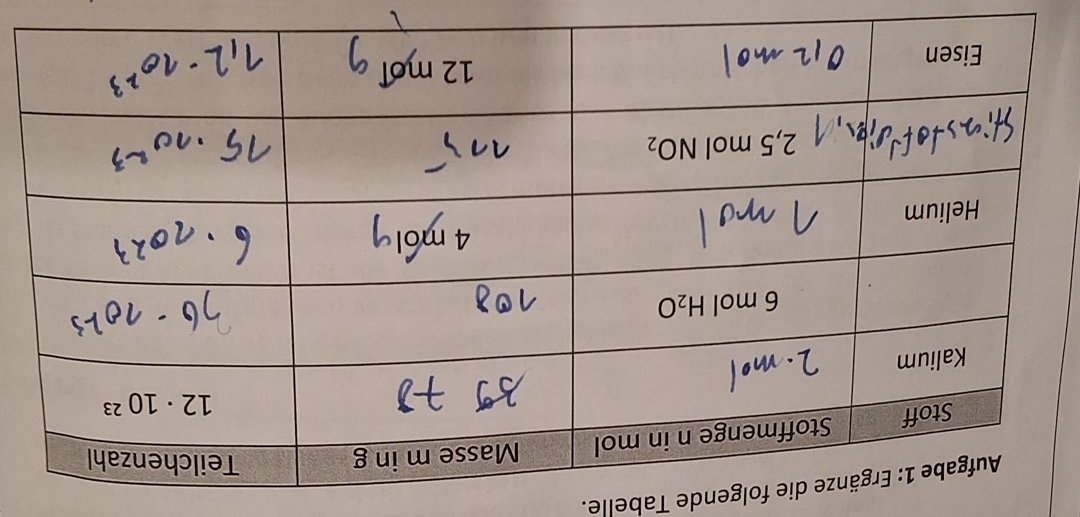 Aufgabe 1: Ergänze die folgende Tabelle.
Stoff Stoffmenge n in mol Masse m in g Teilchenzahl
Kalium 2 mol 39 78 12 · 10 23
6 mol H₂O 108 36 · 10²³
Helium 1 mol 4 mol g 6 · 10²³
2,5 mol NO₂ 115 15 · 10²³
Eisen 0,2 mol 12 mol g 1,2 · 10²³